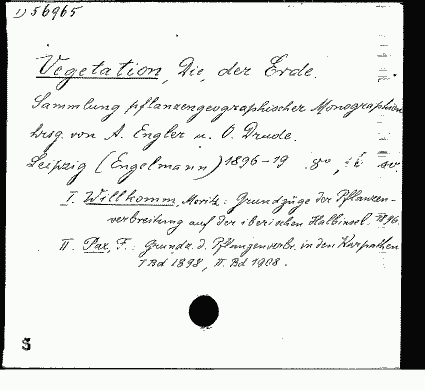 1) 56965
Vegetation, Die, der Erde.
Sammlung pflanzengeographischer Monographien
hrsg. von A. Engler u. O. Drude.
Leipzig (Engelmann) 1896-19 8°
I. Willkomm, Moritz: Grundzüge der Pflanzen-
verbreitung auf der iberischen Halbinsel. 1896.
II. Pax, F.: Grundz. d. Pflanzenverbr. in den Karpathen
I Bd 1898, II. Bd 1908.
S